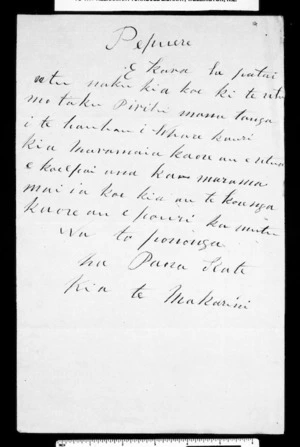 Pepuere
E kara he patai
atu naku kia koe ki te utu
mo taku Pirihi mana tanga
i te hauhau i Whaea kauri
kia maramaia kaore an e utua
e koe pai ana marama
mai ia koe kia au te koanga
kaore au e pouri ka mutu
Na to pononga
na Pana
Kia te Makarini